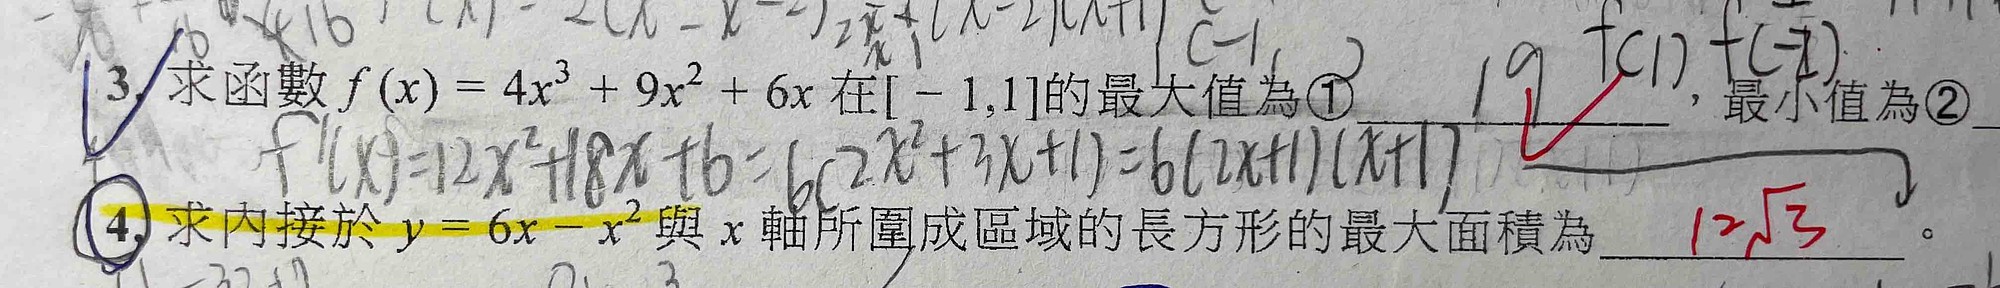 3. 求函數 f (x) = 4x³ + 9x² + 6x 在[ − 1,1]的最大值為① 19 f(1) ，最小值為②
f'(x)=12x²+18x+6=6(2x²+3x+1)=6(2x+1)(x+1)
4. 求內接於 y = 6x − x² 與 x 軸所圍成區域的長方形的最大面積為 12√3 。